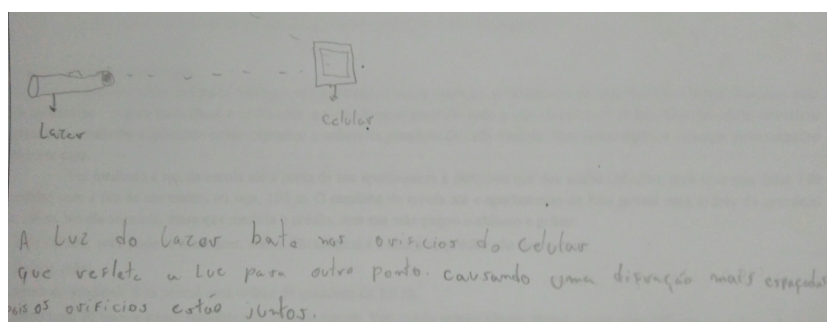 Lazer
celular
A Luz do Lazer bate nos orificios do celular
que reflete a Luz para outro ponto. causando uma difração mais espaçada
pois os orificios estão juntos.